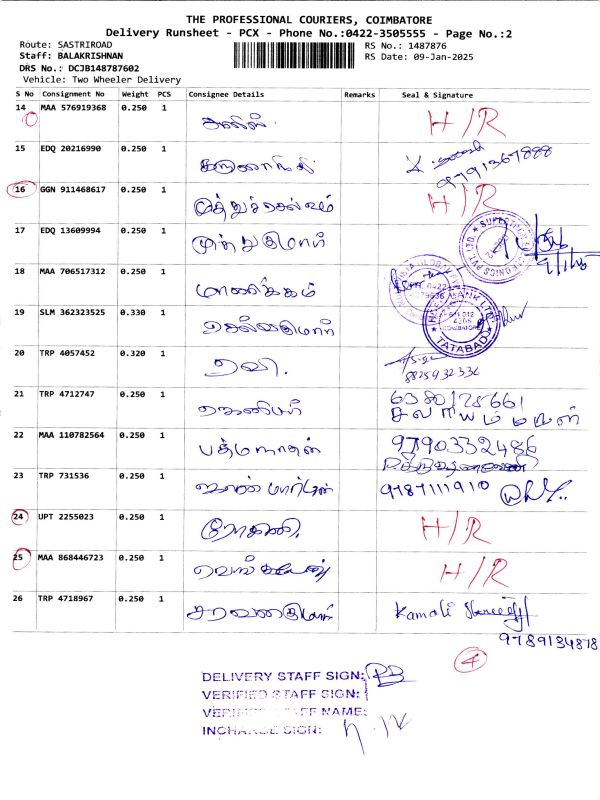 THE PROFESSIONAL COURIERS, COIMBATORE
Delivery Runsheet - PCX - Phone No.:0422-3505555 - Page No.:2
Route: SASTRIROAD
RS No.: 1487876
Staff: BALAKRISHNAN
RS Date: 09-Jan-2025
DRS No.: DCJB148787602
Vehicle: Two Wheeler Delivery
S No Consignment No Weight PCS Consignee Details Remarks Seal & Signature
14 MAA 576919368 0.250 1 H/R
15 EDQ 20216990 0.250 1 9791367888
16 GGN 911468617 0.250 1 முத்துச்செல்வம் H/R
17 EDQ 13609994 0.250 1 முத்துகுமார் 9/1/25
18 MAA 706517312 0.250 1 மாணிக்கம்
19 SLM 362323525 0.330 1 செல்வகுமார் TATABAD
20 TRP 4057452 0.320 1 ரவி. 8825932336
21 TRP 4712747 0.250 1 6380125661
22 MAA 110782564 0.250 1 பத்மநாதன் 9790332486
23 TRP 731536 0.250 1 ஜான் மார்டின் 9787111910
24 UPT 2255023 0.250 1 ரோகிணி. H/R
25 MAA 868446723 0.250 1 H/R
26 TRP 4718967 0.250 1 சரவணகுமார் Kamali
9789134878
4
DELIVERY STAFF SIGN:
VERIFIED STAFF SIGN:
VERIFIED STAFF NAME:
INCHARGE SIGN: